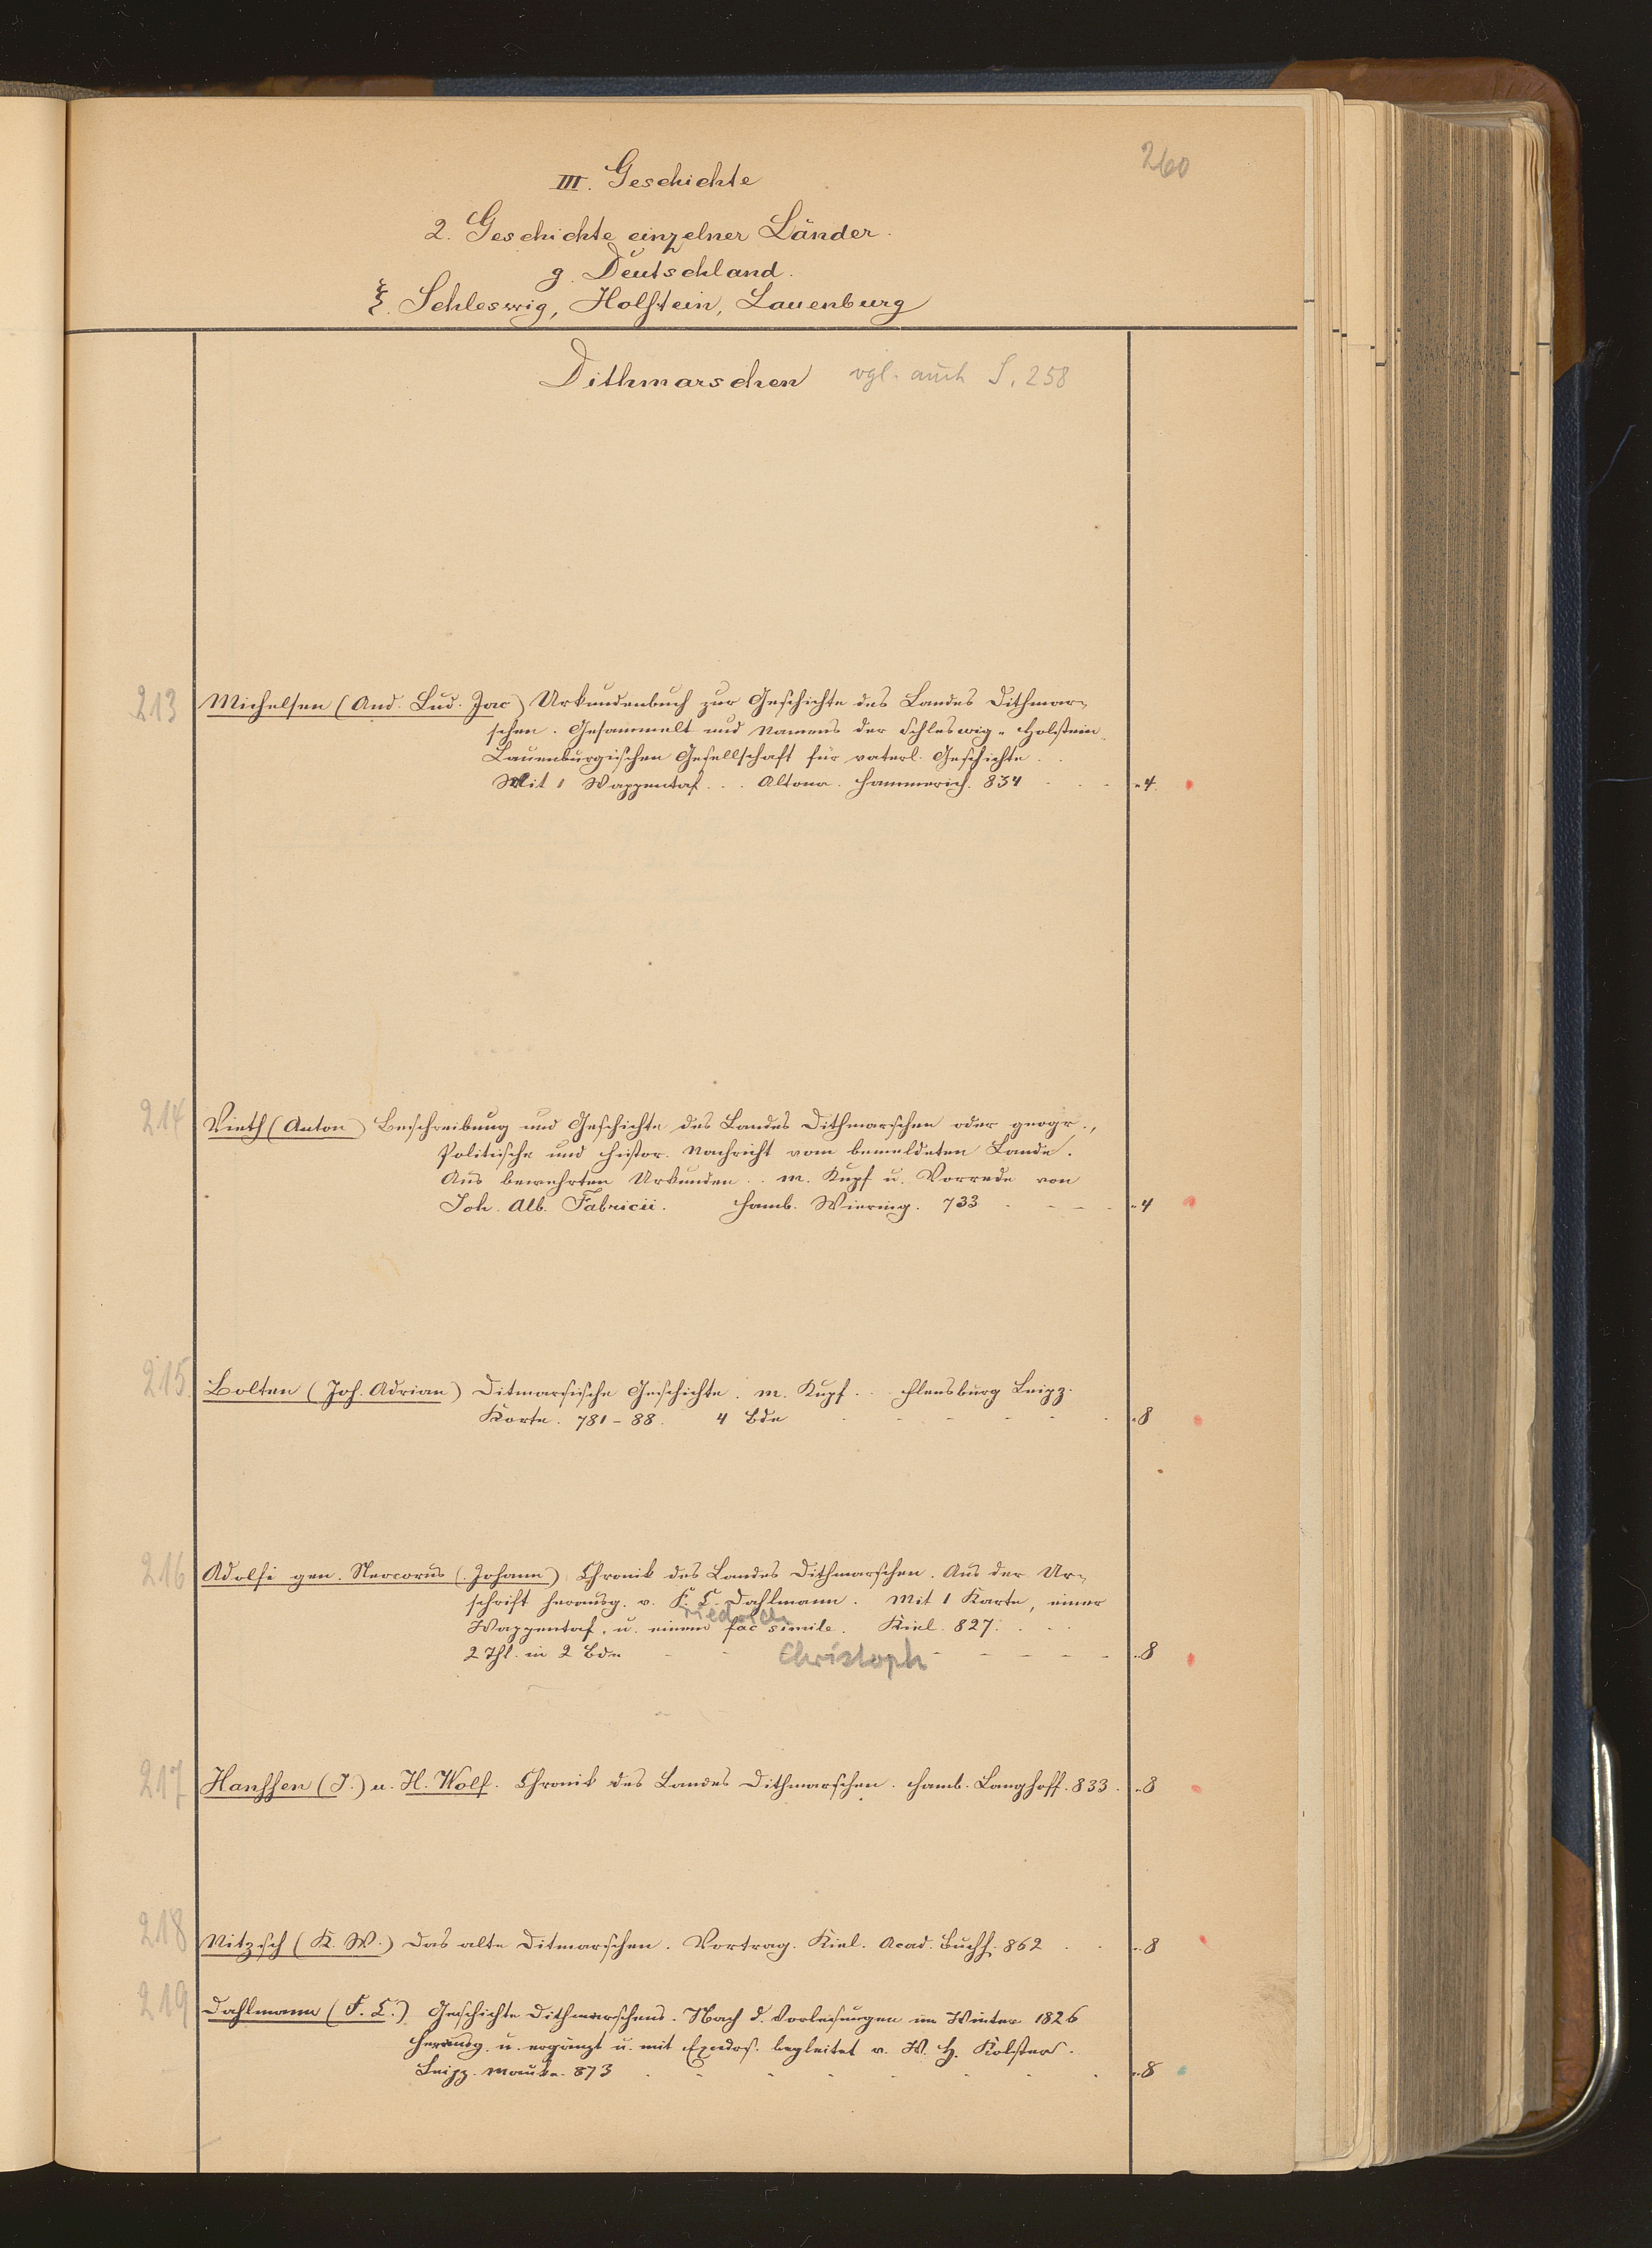 260
III. Geschichte
2. Geschichte einzelner Länder.
g. Deutschland.
ξ. Schleswig, Holstein, Lauenburg
Dithmarschen vgl. auch S. 258
213 Michelsen (And. Lud. Jac) Urkundenbuch zur Geschichte des Landes Dithmar-
schen. Gesammelt und Namens der Schleswig-Holstein
Lauenburgischen Gesellschaft für vaterl. Geschichte . .
Mit 1 Wappentaf. . . Altona. Hammerich. 834 - - - „4.
214 Vieth (Anton) Beschreibung und Geschichte des Landes Dithmarschen oder geogr.,
Politische und histor. Nachricht vom bemeldeten Lande.
Aus bewehrten Urkunden . . m. Kupf u. Vorrede von
Joh. Alb. Fabricii. Hamb. Wiering. 733 - - - - „4
215 Bolten (Joh. Adrian) Ditmarsische Geschichte. m. Kupf. . . Flensburg Leipz.
Korte. 781-88. 4 Bde - - - - - - „8
216 Adolfi gen. Neocorus (Johann) Chronik des Landes Dithmarschen. Aus der Ur-
schrift herausg. v. F. C. Dahlmann. Mit 1 Karte, einer
riedrich
Wappentaf. u. einem fac simile. Kiel. 827. . . .
2 Thl. in 2 Bdn - - Christoph - - - - „8
217 Hanssen (J.) u. H. Wolf. Chronik des Landes Dithmarschen. Hamb. Langhoff. 833. „8
218 Nitzsch (K. W.) Das alte Ditmarschen. Vortrag. Kiel. Acad. Buchh. 862 . . „8
219 Dahlmann (F. C.) Geschichte Dithmarschens. Nach d. Vorlesungen im Winter 1826
herausg. u. ergänzt u. mit Excurs. begleitet v. W. H. Kolster.
Leipz. Mauke. 873 - - - - - - - „8